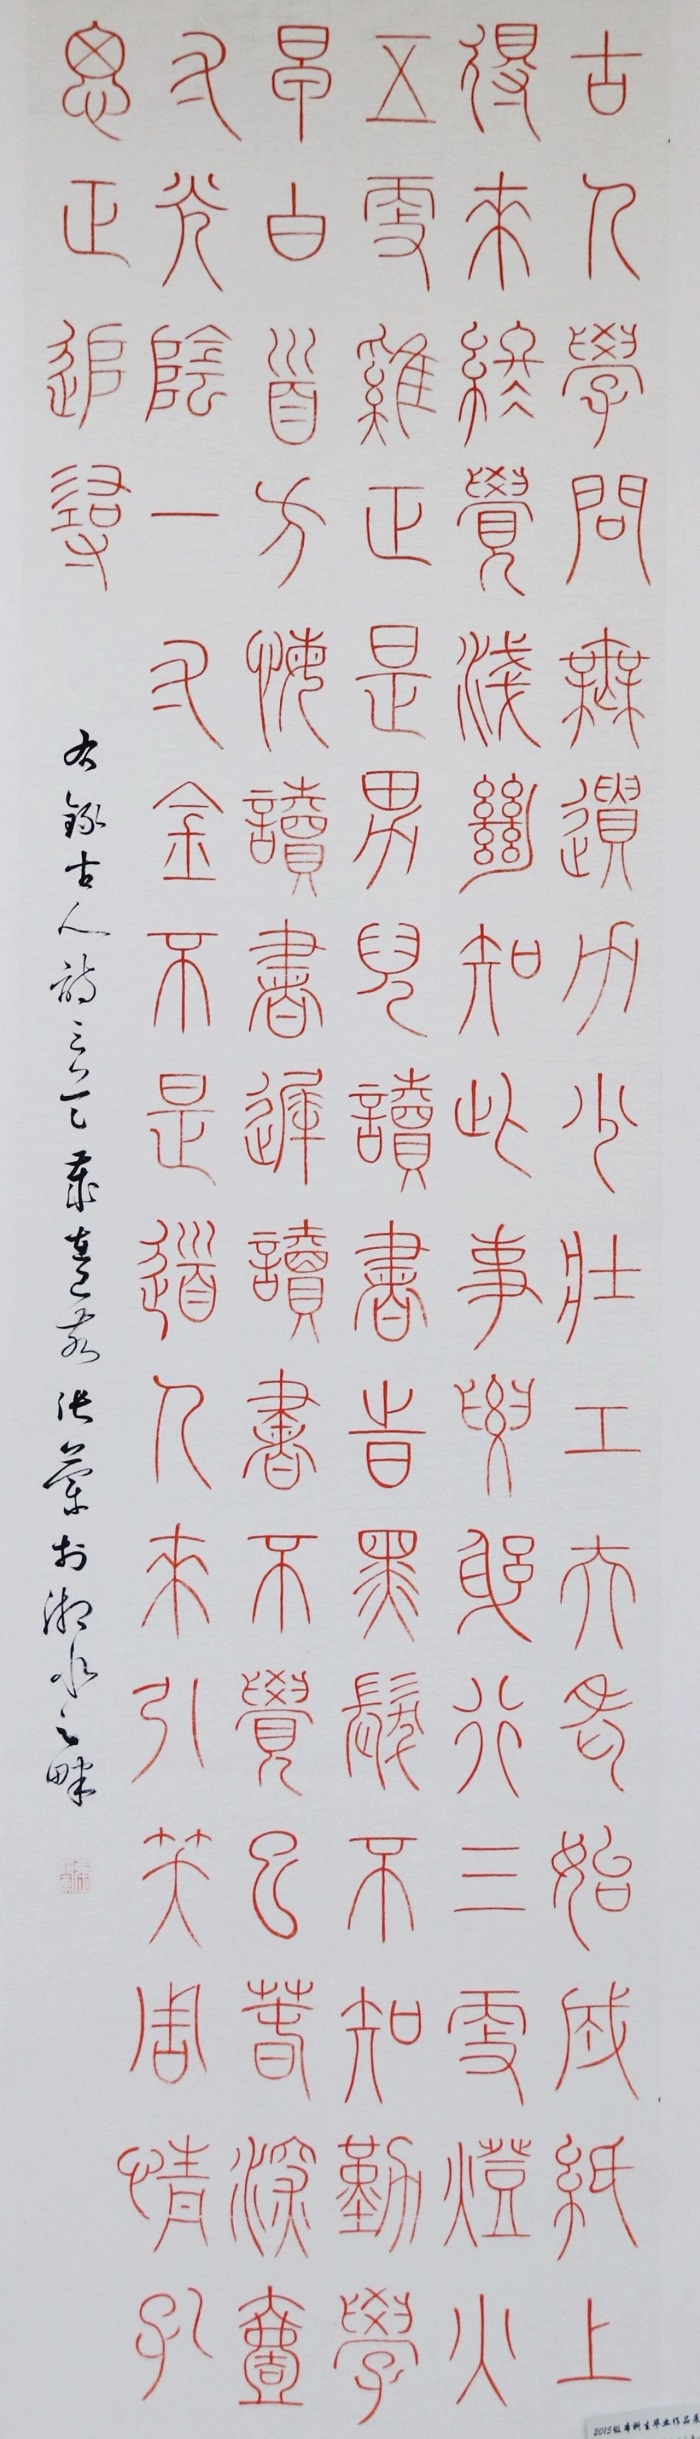 古人學問無遺力少壯工夫老始成紙上
得來終覺淺絕知此事要躬行三更燈火
五更雞正是男兒讀書時黑髮不知勤學
早白首方悔讀書遲讀書不覺已春深壹
寸光陰一寸金不是道人來引笑周情孔
思正追尋
右錄古人詩三 張蘭於湘水之畔
2015级本科生毕业作品展